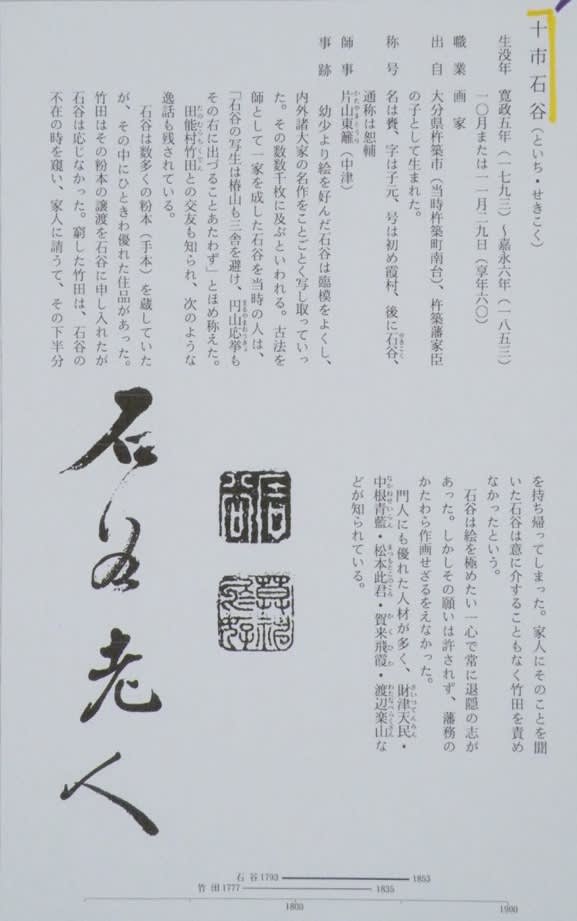 十市石谷（といち・せきこく）
生没年　寛政五年（一七九三）～嘉永六年（一八五三）
一〇月または一一月二九日（享年六〇）
職業　画家
出自　大分県杵築市（当時杵築町南台）、杵築藩家臣
の子として生まれた。
称号　名は賚、字は子元、号は初め霞村、後に石谷、
通称は恕輔
師事　片山東籬（中津）
事跡　幼少より絵を好んだ石谷は臨模をよくし、
内外諸大家の名作をことごとく写し取っていっ
た。その数数千枚に及ぶといわれる。古法を
師として一家を成した石谷を当時の人は、
「石谷の写生は椿山も三舎を避け、円山応挙も
その右に出づることあたわず」とほめ称えた。
田能村竹田との交友も知られ、次のような
逸話も残されている。
石谷は数多くの粉本（手本）を蔵していた
が、その中にひときわ優れた佳品があった。
竹田はその粉本の譲渡を石谷に申し入れたが
石谷は応じなかった。窮した竹田は、石谷の
不在の時を窺い、家人に請うて、その下半分
を持ち帰ってしまった。家人にそのことを聞
いた石谷は意に介することもなく竹田を責め
なかったという。
石谷は絵を極めたい一心で常に退隠の志が
あった。しかしその願いは許されず、藩務の
かたわら作画せざるをえなかった。
門人にも優れた人材が多く、財津天民・
中根青藍・松本此君・賀来飛霞・渡辺楽山な
どが知られている。
石谷老人
石谷 1793 1853
竹田 1777 1835
1800 1900